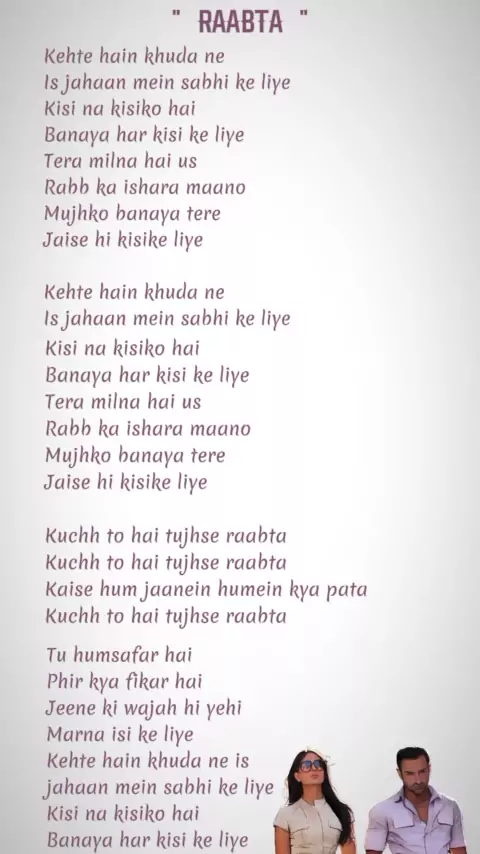 " RAABTA "
Kehte hain khuda ne
Is jahaan mein sabhi ke liye
Kisi na kisiko hai
Banaya har kisi ke liye
Tera milna hai us
Rabb ka ishara maano
Mujhko banaya tere
Jaise hi kisike liye
Kehte hain khuda ne
Is jahaan mein sabhi ke liye
Kisi na kisiko hai
Banaya har kisi ke liye
Tera milna hai us
Rabb ka ishara maano
Mujhko banaya tere
Jaise hi kisike liye
Kuchh to hai tujhse raabta
Kuchh to hai tujhse raabta
Kaise hum jaanein humein kya pata
Kuchh to hai tujhse raabta
Tu humsafar hai
Phir kya fikar hai
Jeene ki wajah hi yehi
Marna isi ke liye
Kehte hain khuda ne is
jahaan mein sabhi ke liye
Kisi na kisiko hai
Banaya har kisi ke liye